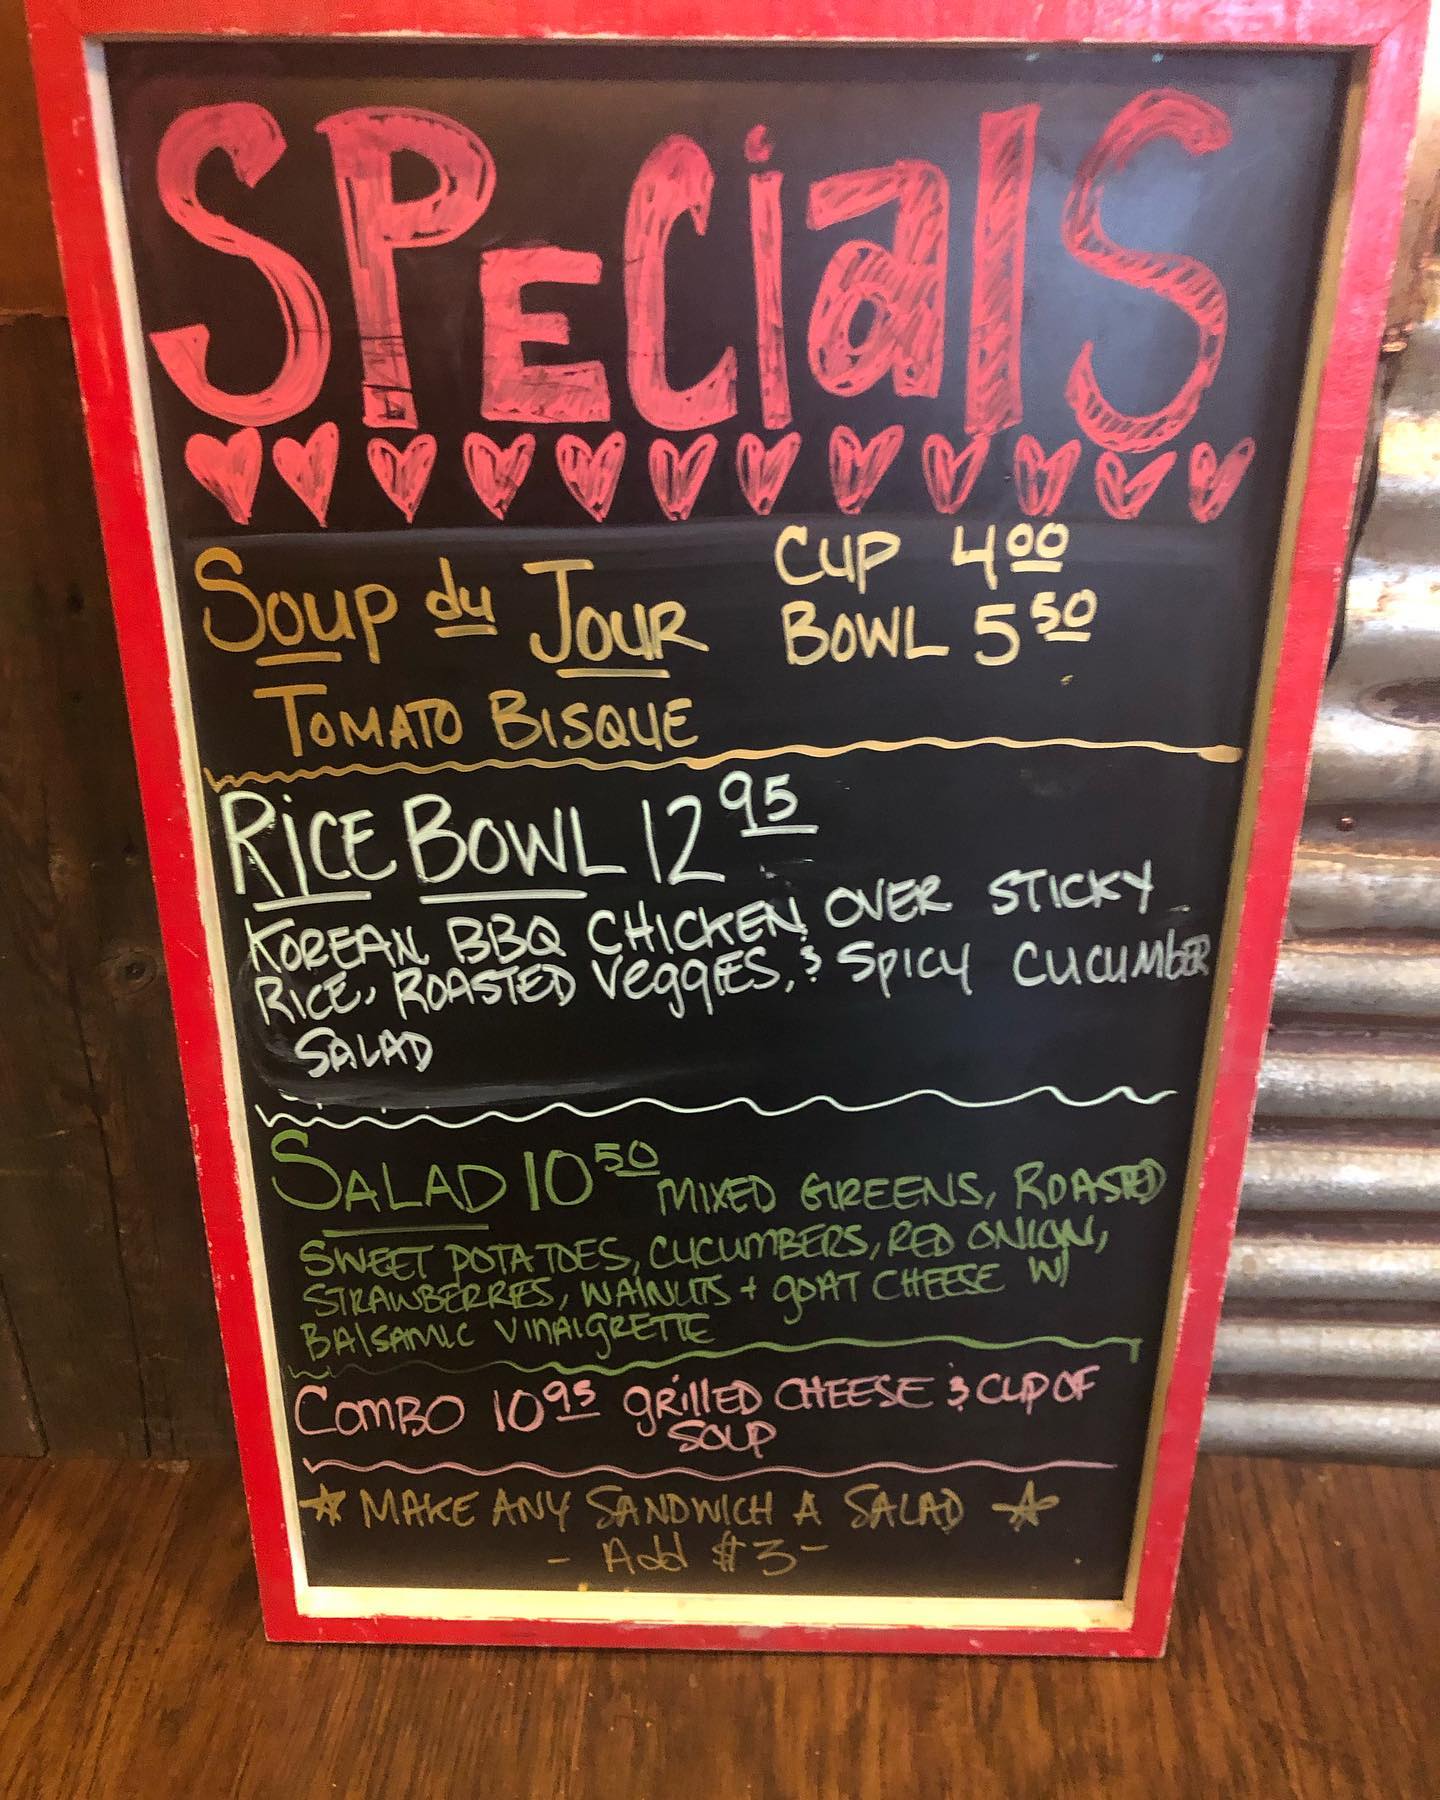 SPECialS
Soup du Jour Cup 4.00
Bowl 5.50
Tomato Bisque
Rice Bowl 12.95
Korean BBQ Chicken over sticky
rice, roasted veggies, & spicy cucumber
salad
Salad 10.50 mixed greens, roasted
sweet potatoes, cucumbers, red onion,
strawberries, walnuts + goat cheese w/
balsamic vinaigrette
Combo 10.95 grilled cheese & cup of
soup
☆ Make any sandwich a salad ☆
- Add $3 -